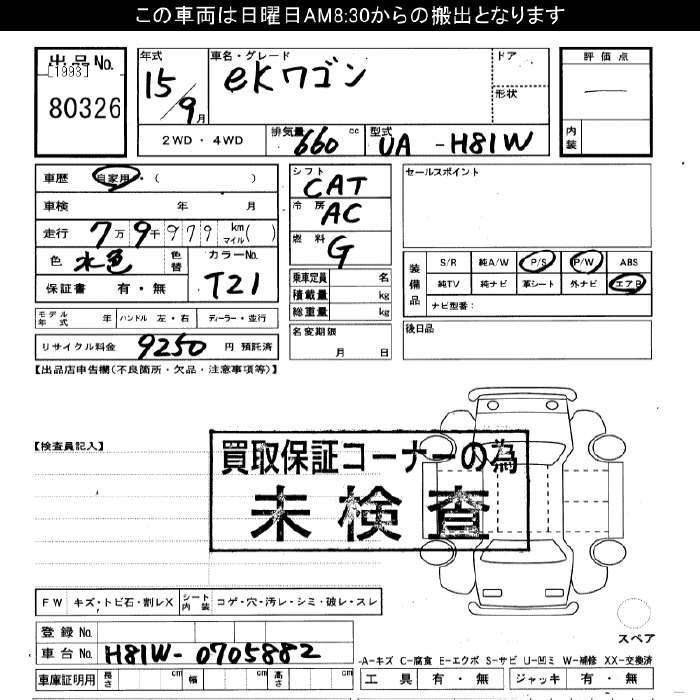 この車両は日曜日AM8:30からの搬出となります
出品No.
[1993]
80326
年式
15/9月
車名・グレード
eKワゴン
ドア
形状
評価点
内装
2WD・4WD
排気量 660 cc
型式 UA-H81W
車歴 自家用・( )
車検 年 月
走行 7万9千979 km マイル( )
色 水色 色替
カラーNo. T21
保証書 有・無
シフト CAT
冷房 AC
燃料 G
乗車定員 名
積載量 kg
総重量 kg
セールスポイント
装備品
S/R 純A/W P/S P/W ABS
純TV 純ナビ 革シート 外ナビ エアB
ナビ型番:
モデル年式 年 ハンドル 左・右 ディーラー・並行
名変期限 月 日
後日品
リサイクル料金 9250 円 預託済
【出品店申告欄(不良箇所・欠品・注意事項等)】
【検査員記入】
買取保証コーナーの為
未検査
FW キズ・トビ石・割レX シート内装 コゲ・穴・汚レ・シミ・破レ・スレ
登録No.
車台No. H81W-0705882
車庫証明用 長さ cm 幅 cm 高さ cm
スペア
-A-キズ C-腐食 E-エクボ S-サビ U-凹ミ W-補修 XX-交換済
工具 有・無 ジャッキ 有・無